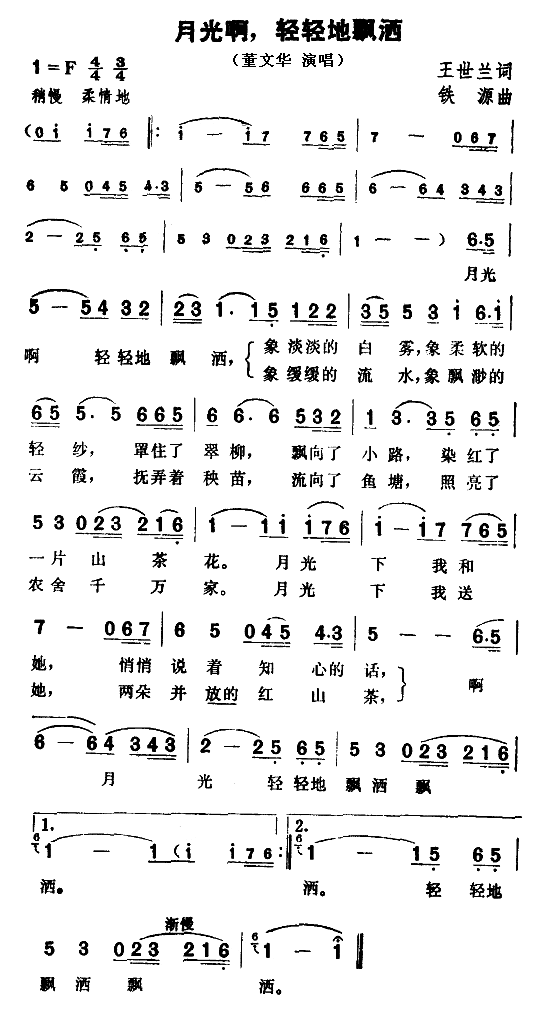 月光啊，轻轻地飘洒
（董文华 演唱）
1=F 4/4 3/4
王世兰词
稍慢 柔情地
铁 源曲
(0 i i 1 7 6 ‖: i — i 7 7 6 5 | 7 — 0 6 7 |
6 5 0 4 5 4·3 | 5 — 5 6 6 6 5 | 6 — 6 4 3 4 3 |
2 — 2 5 6 5 | 5 3 0 2 3 2 1 6 | 1 — — ) 6·5 |
月光
5 — 5 4 3 2 | 2 3 1· 1 5 1 2 2 | 3 5 5 3 i 6·i |
啊 轻轻地飘洒， 象淡淡的白雾，象柔软的
象缓缓的流水，象飘渺的
6 5 5·5 6 6 5 | 6 6·6 5 3 2 | 1 3·3 5 6 5 |
轻纱，罩住了翠柳，飘向了小路，染红了
云霞，抚弄着秧苗，流向了鱼塘，照亮了
5 3 0 2 3 2 1 6 | 1 — 1 i i 1 7 6 | i — i 7 7 6 5 |
一片山茶花。月光下我和
农舍千万家。月光下我送
7 — 0 6 7 | 6 5 0 4 5 4·3 | 5 — — 6·5 |
她，悄悄说着知心的话，
她，两朵并放的红山茶，
啊
6 — 6 4 3 4 3 | 2 — 2 5 6 5 | 5 3 0 2 3 2 1 6 |
月光轻轻地飘洒飘
1. 2.
6 1 — 1 ( i i 1 7 6 :‖ 6 1 — 1 5 6 5 |
洒。 洒。 轻轻地
渐慢
5 3 0 2 3 2 1 6 | 6 1 — 1 ‖
飘洒飘 洒。